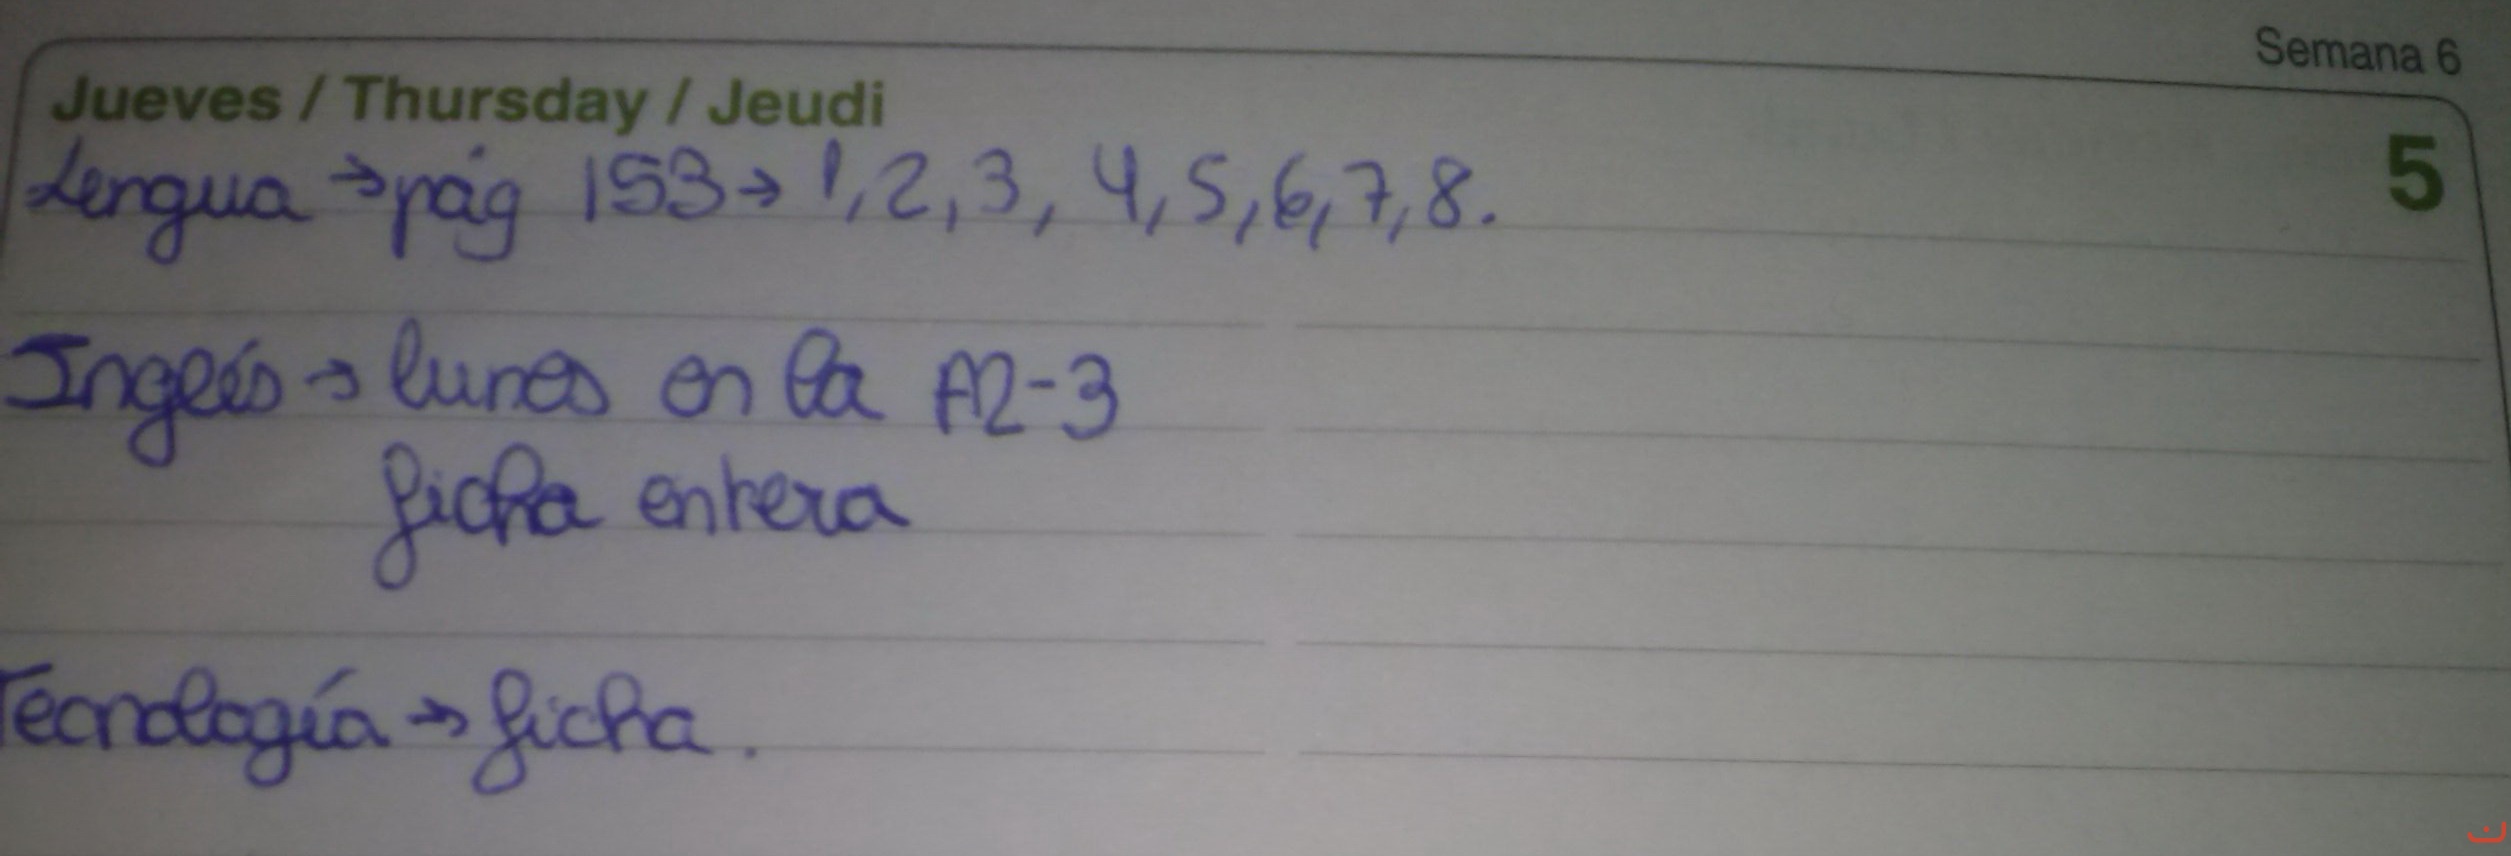 Semana 6
Jueves / Thursday / Jeudi
5
Lengua → pág 153 → 1, 2, 3, 4, 5, 6, 7, 8.
Inglés → lunes en la A2-3
ficha entera
Tecnología → ficha.